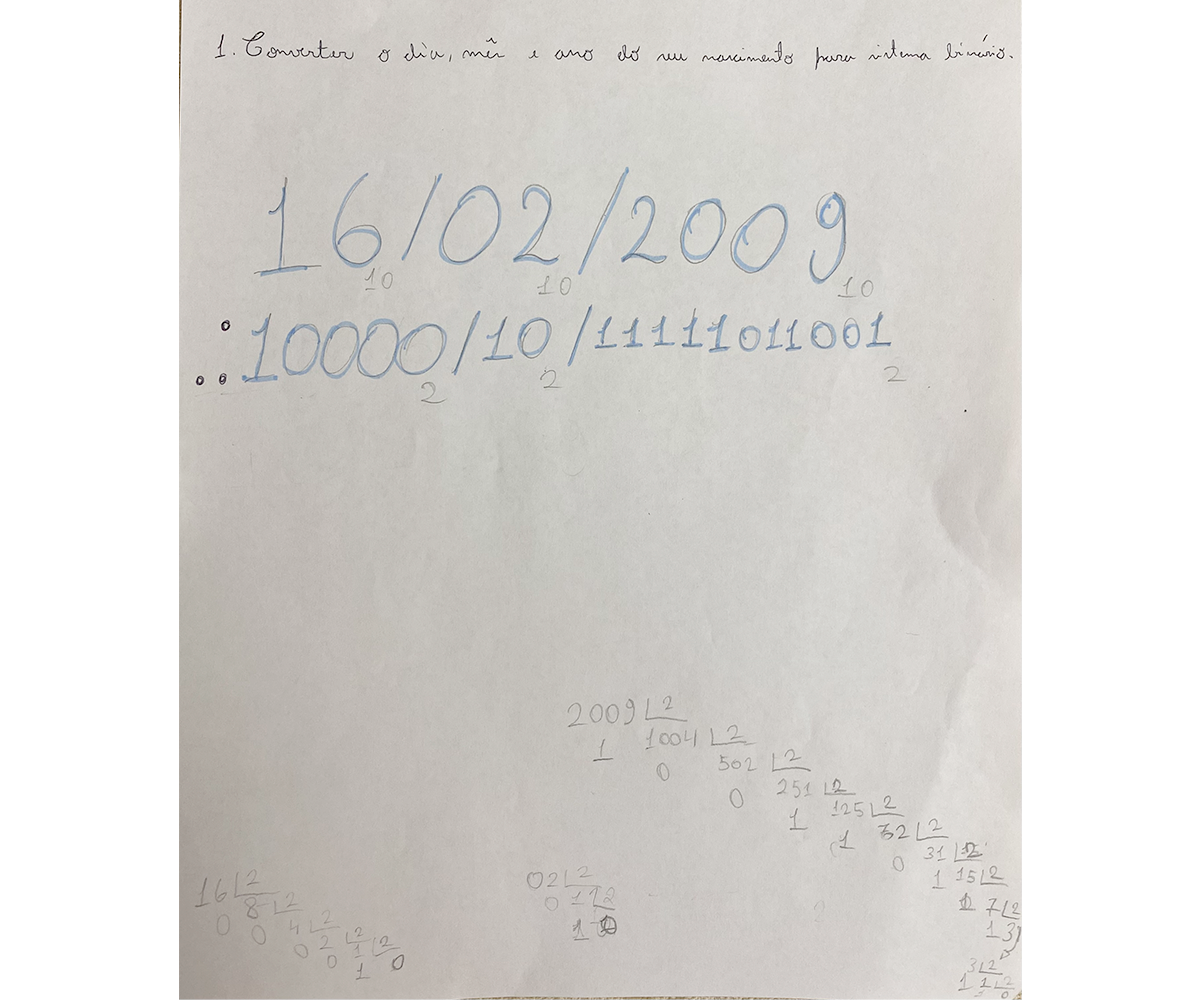 1. Converter o dia, mês e ano do seu nascimento para sistema binário.
16/02/2009
10 10 10
10000/10/11111011001
2 2 2
2009 2
1 1004 2
0 502 2
0 251 2
1 125 2
1 62 2
0 31 2
1 15 2
1 7 2
1 3
3 2
1 1 2
1 0
16 2
0 8 2
0 4 2
0 2 2
0 1 2
1 0
02 2
0 1 2
1 0